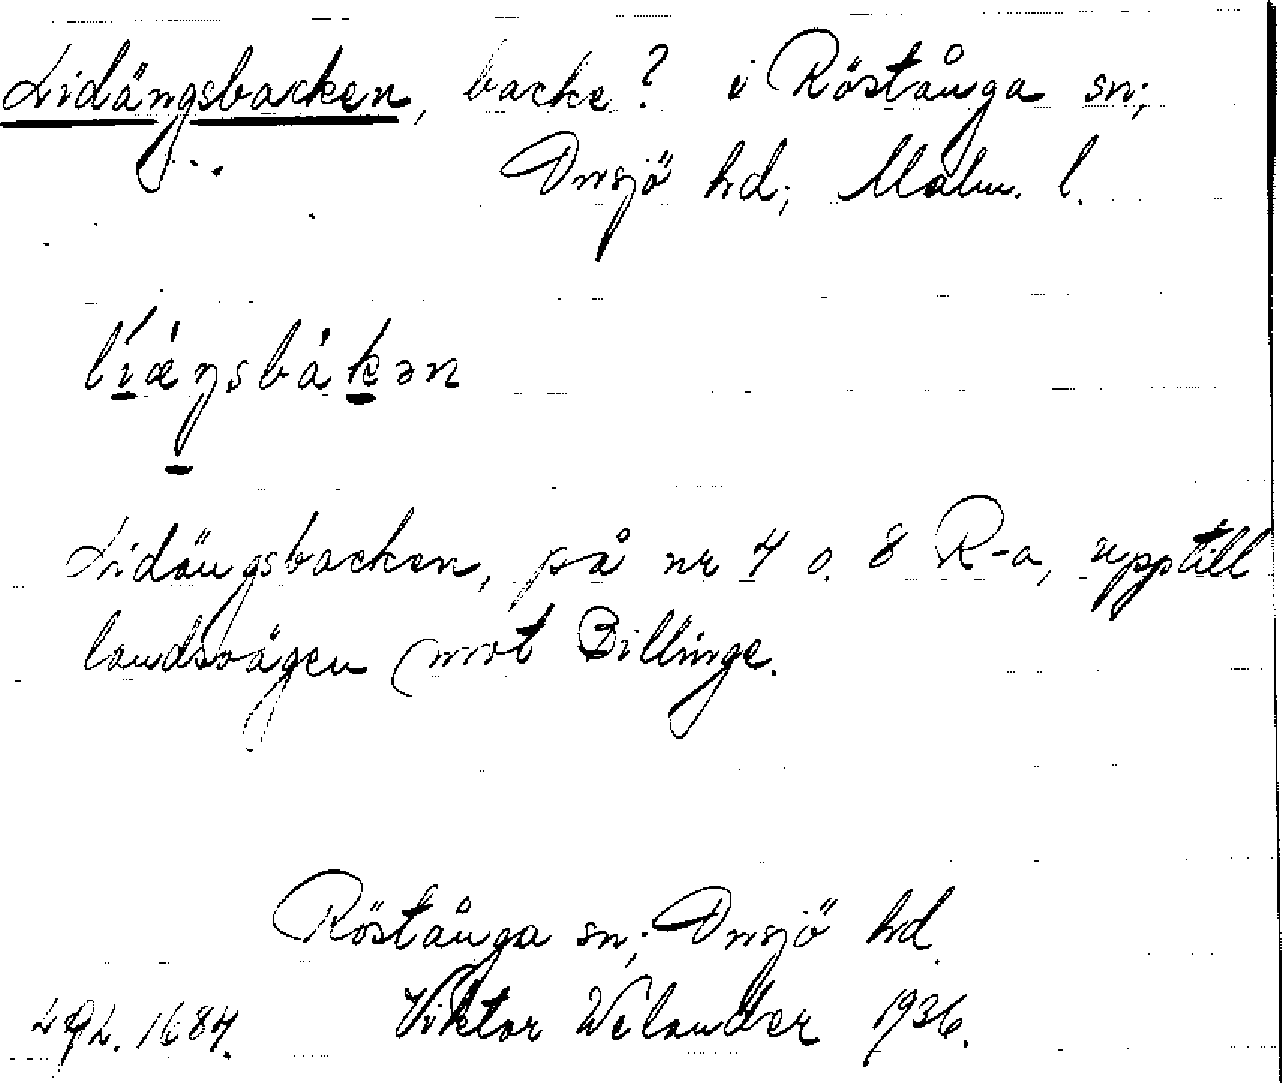 Lidängsbacken, backe? i Röstånga sn;
Onsjö hd; Malm. l.
Lidängsbacken, på nr 7 o. 8 R-a, upptill
landsvägen mot Billinge.
Röstånga sn; Onsjö hd.
Viktor Wilander 1936.